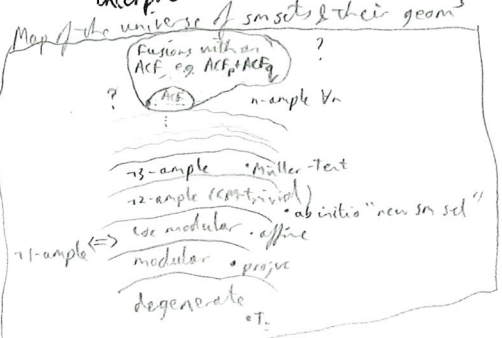 Map of the universe of sm sets & their geom^s
Fusions with an
ACF, e.g. ACF_p+ACF_q
?
?
ACF
n-ample ∀n
⋮
¬3-ample • Müller-Tent
¬2-ample (CM-trivial)
• ab initio "new sm set"
¬1-ample <=> loc modular • affine
modular • projve
degenerate